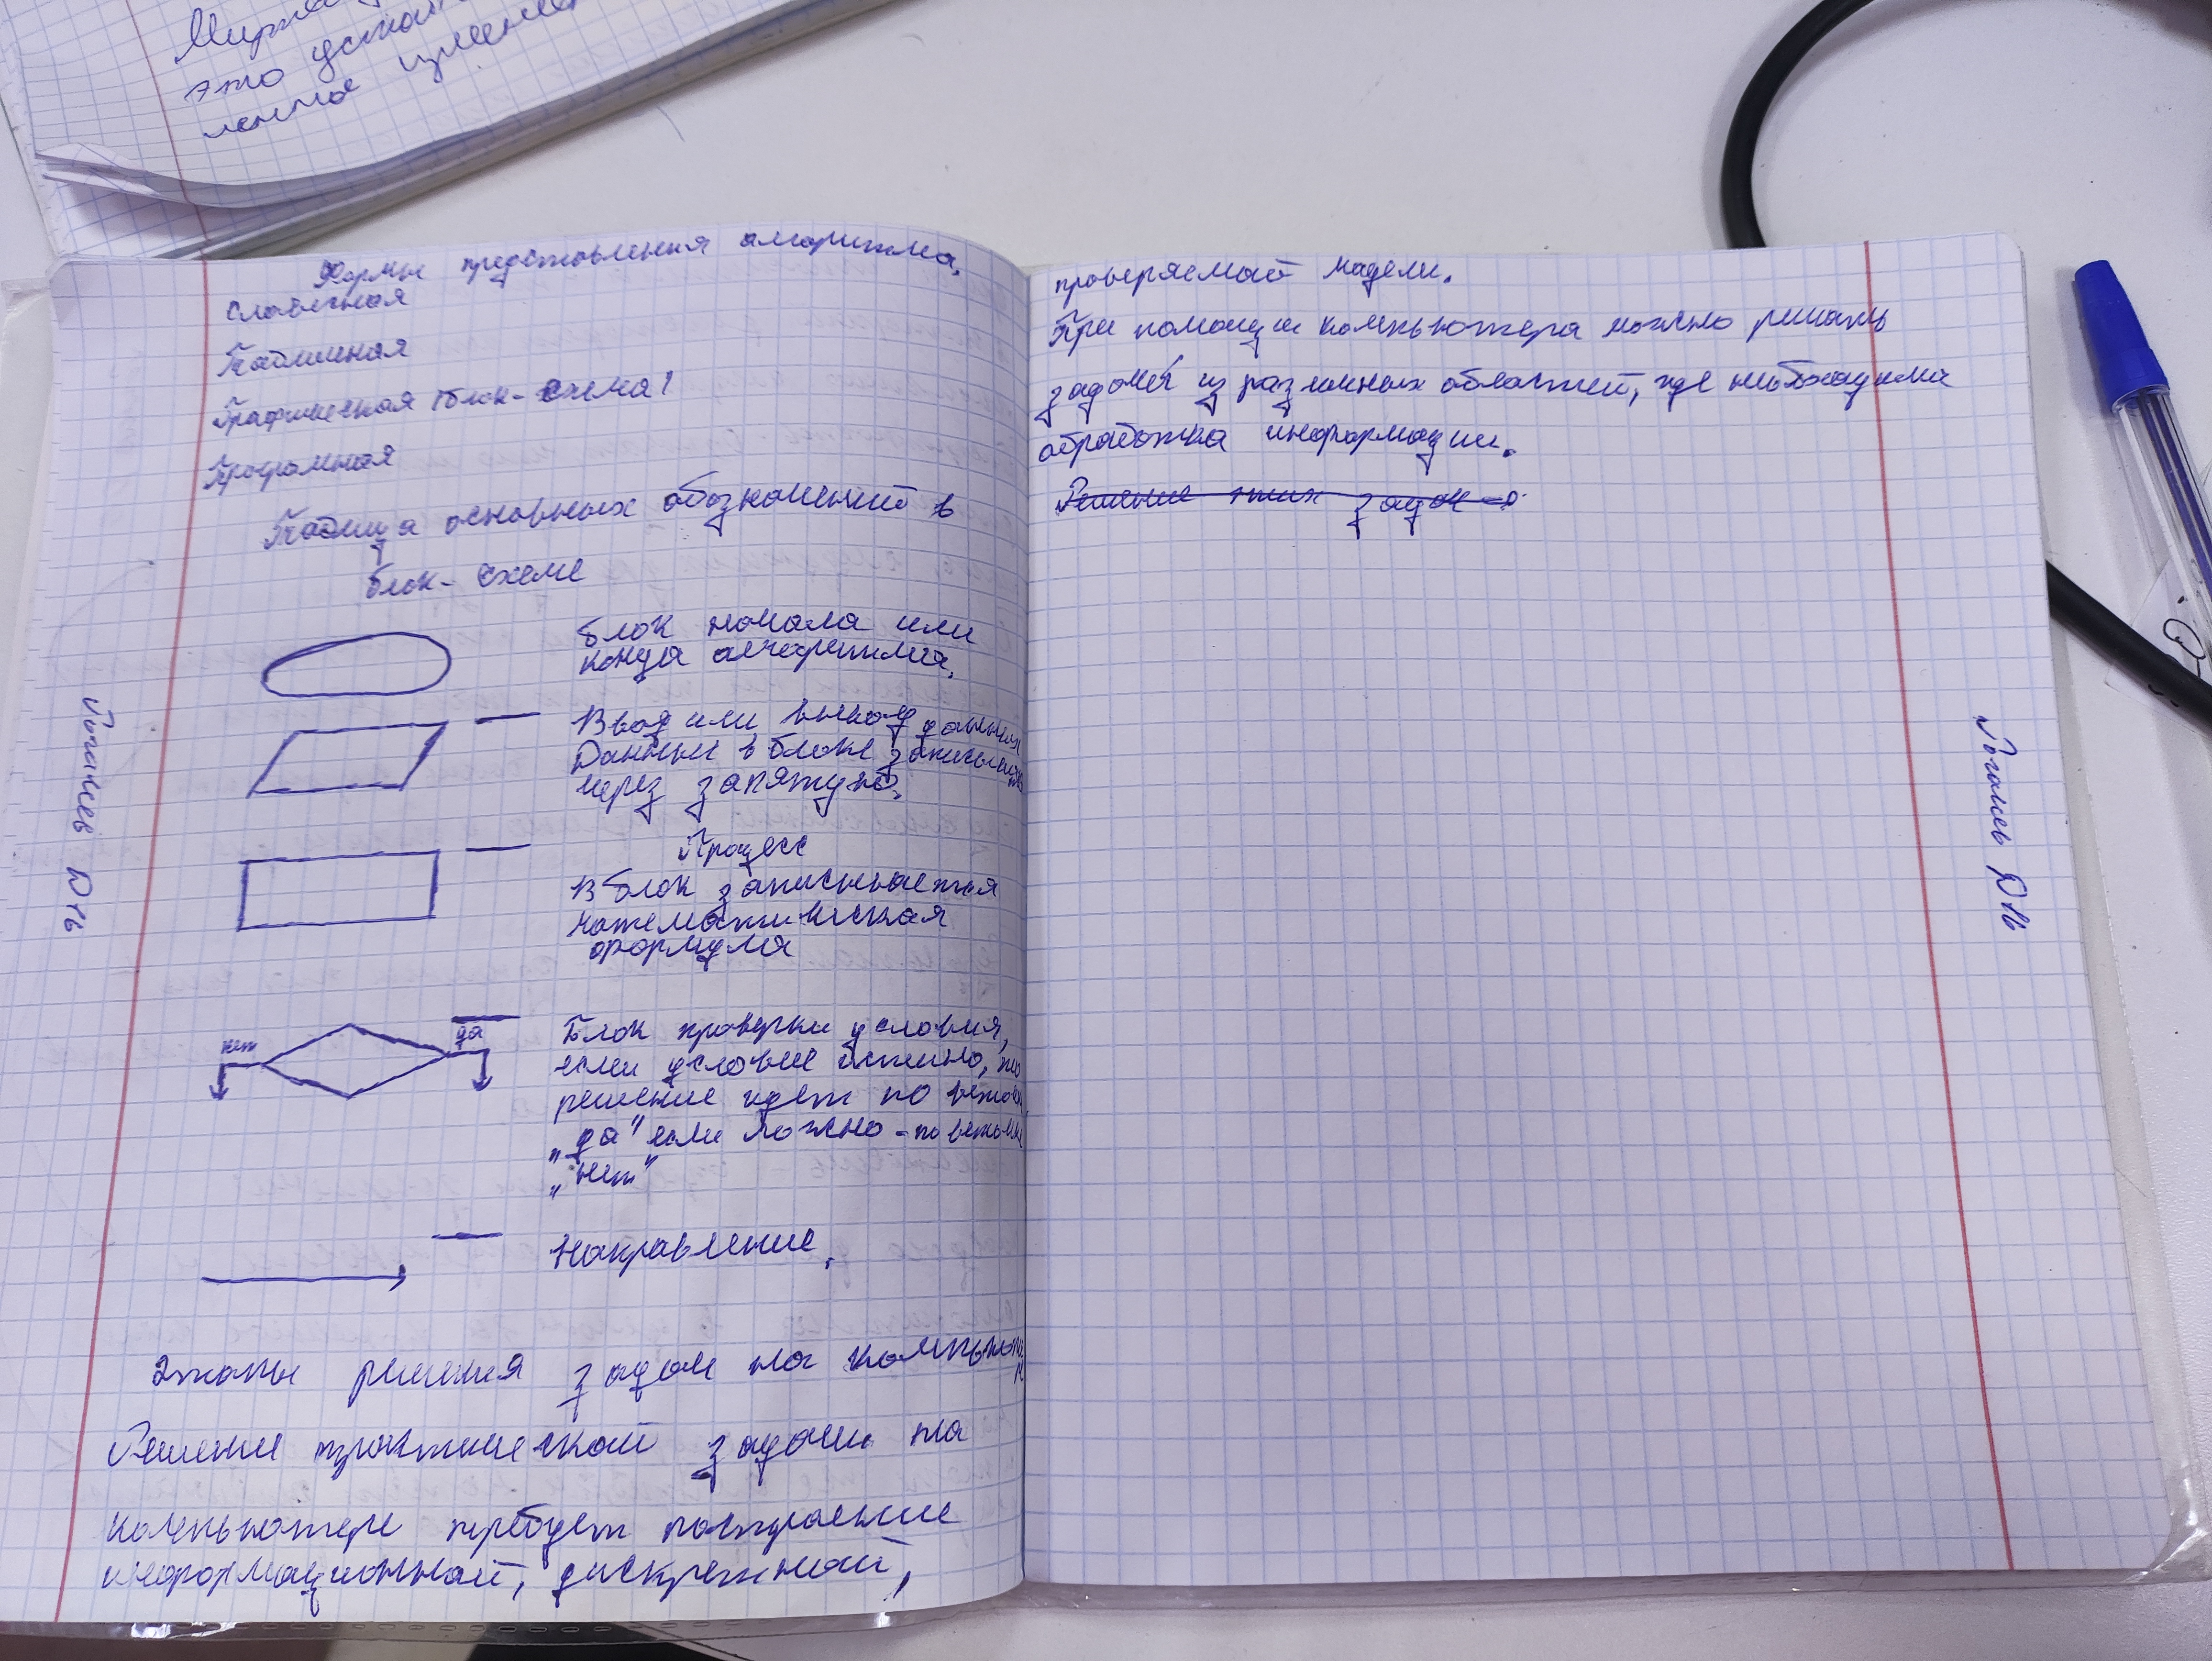 это
Формы представления алгоритма.
Словесная
Табличная
Графическая (блок-схема)
Програмная
Таблица основных обозначений в
блок-схеме
Блок начала или
конца алгоритма.
Ввод или вывод данных
Данные в блоке записываются
через запятую.
Процесс
В блок записывается
математическая
формула
нет
да
Блок проверки условия,
если условие истино, то
решение идет по ветке
„да" если ложно - по ветке
„нет"
Направление.
Этапы решения задач на компьютере
Решение практической задачи на
компьютере требует построение
информационной, дискретной,
проверяемой модели.
При помощи компьютера можно решать
задачи из различных областей, где необходима
обработка информации.
Решение этих задач